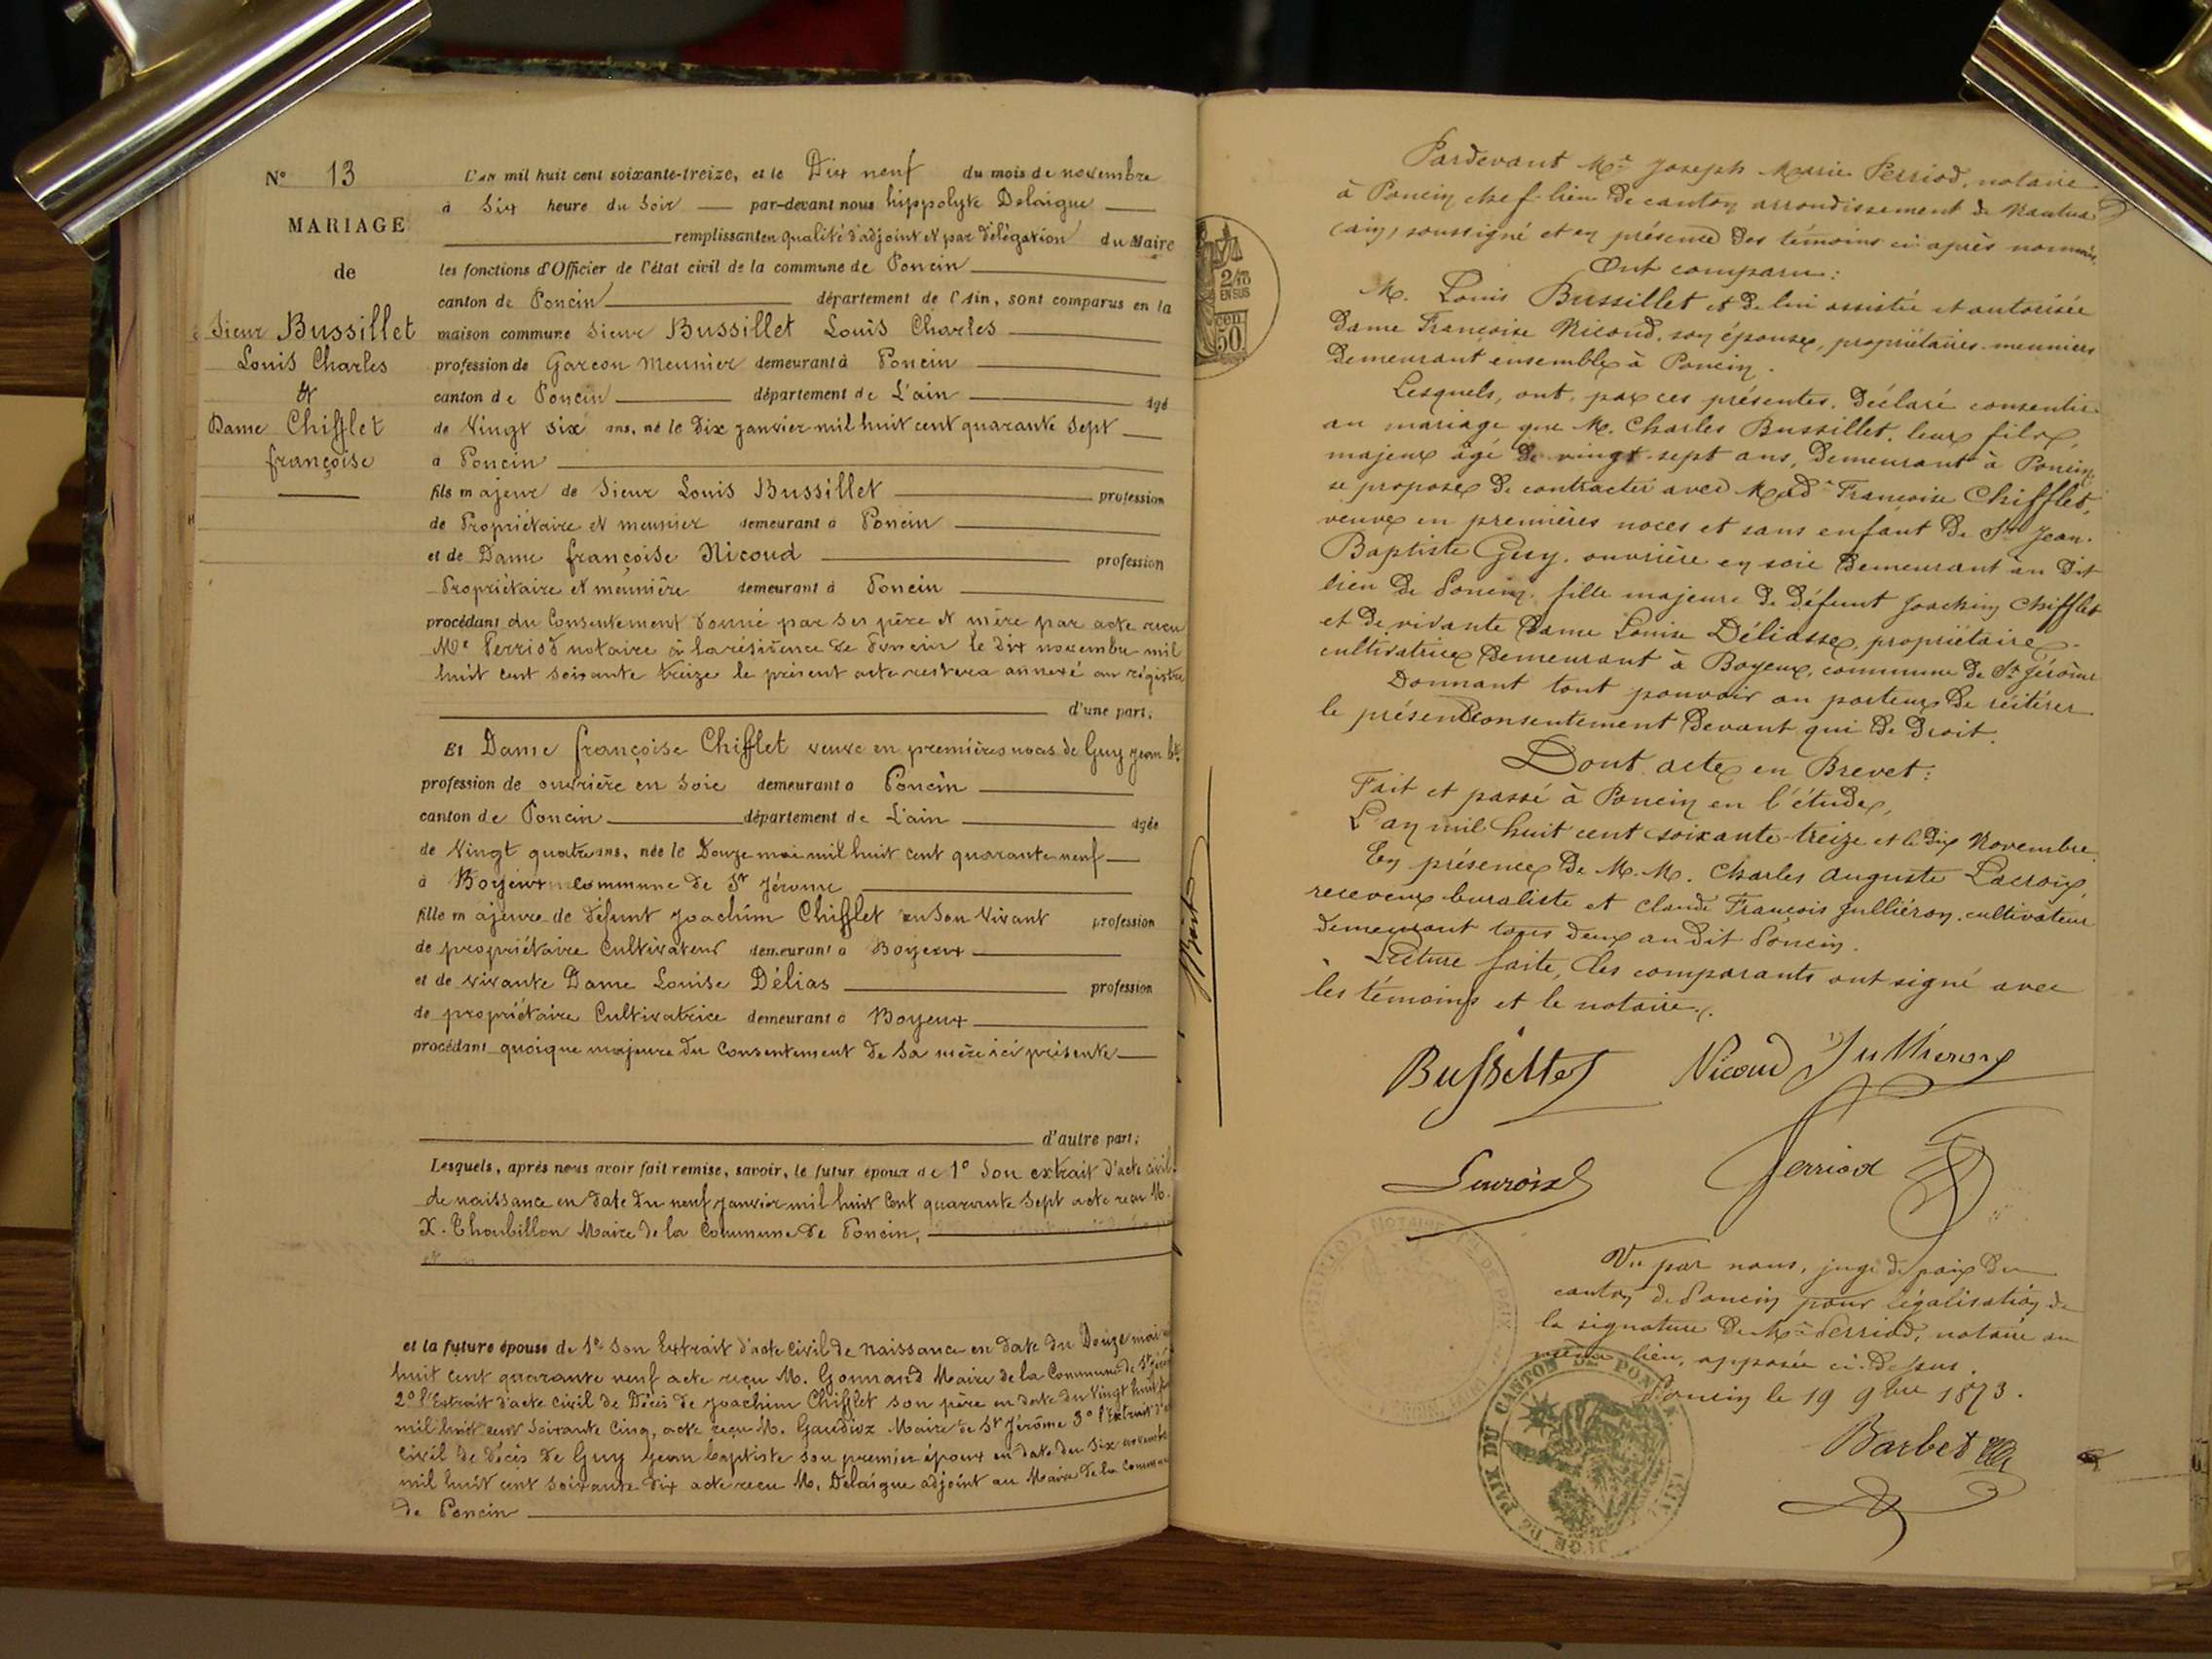 N° 13
MARIAGE
de
Sieur Bussillet
Louis Charles
&
Dame Chifflet
françoise
L'an mil huit cent soixante-treize, et le Dix neuf du mois de novembre
à Six heure du Soir par-devant nous hippolyte Delaigue
remplissant en qualité d'adjoint et par délégation du Maire
les fonctions d'Officier de l'état civil de la commune de Poncin
canton de Poncin département de l'Ain, sont comparus en la
maison commune Sieur Bussillet Louis Charles
profession de Garcon Meunier demeurant à Poncin
canton de Poncin département de L'ain âgé
de Vingt six ans, né le Dix janvier mil huit cent quarante Sept
à Poncin
fils majeur de Sieur Louis Bussillet profession
de Propriétaire et meunier demeurant à Poncin
et de Dame françoise Nicoud profession
Propriétaire et meunière demeurant à Poncin
procédant du Consentement donné par ses père et mère par acte reçu
Me Perriod notaire à la résidence de Poncin le dix novembre mil
huit cent soixante treize le présent acte restera annexé au régistre
d'une part,
Et Dame françoise Chifflet veuve en premières noces de Guy jean bte
profession de ouvrière en Soie demeurant à Poncin
canton de Poncin département de L'ain âgée
de Vingt quatre ans, née le Douze mai mil huit cent quarante neuf
à Boyeux commune de St Jérome
fille majeure de défunt Joachim Chifflet en Son Vivant profession
de propriétaire Cultivateur demeurant à Boyeux
et de vivante Dame Louise Délias profession
de propriétaire Cultivatrice demeurant à Boyeux
procédant quoique majeure du Consentement de Sa mère ici présente
d'autre part;
Lesquels, après nous avoir fait remise, savoir, le futur époux de 1° Son extrait d'acte civil
de naissance en date du neuf janvier mil huit Cent quarante Sept acte reçu M.
X. Thoubillon Maire de la Commune de Poncin,
et la future épouse de 1° Son Extrait d'acte Civil de naissance en date du Douze mai
huit cent quarante neuf acte reçu M. Gonnand Maire de la Commune de St
2° l'Extrait d'acte civil de Décès de Joachim Chifflet son père en date du Vingt huit
mil huit cent Soixante Cinq, acte reçu M. Gaudioz Maire de St Jérôme 3° l'Extrait
Civil de décès de Guy Jean baptiste son premier époux en date du Six novembre
mil huit cent Soixante dix acte reçu M. Delaigue adjoint au Maire de la Commune
de Poncin
2/10
EN SUS
50
CEN
Pardevant Me Joseph Marie Perriod, notaire
à Poncin chef-lieu de canton arrondissement de Nantua
(ain) soussigné et en présence des témoins ci-après nommés,
Ont comparu:
M. Louis Bussillet et de lui assistée et autorisée
Dame Françoise Nicoud, son épouse, propriétaires-meuniers
demeurant ensemble à Poncin.
Lesquels, ont, par ces présentes, déclaré consentir
au mariage que M. Charles Bussillet, leur fils,
majeur âgé de vingt-sept ans, demeurant à Poncin,
se propose de contracter avec Mad. Françoise Chifflet,
veuve en premières noces et sans enfant de Sr Jean-
Baptiste Guy, ouvrière en soie demeurant au dit
lieu de Poncin, fille majeure de défunt Joachim Chifflet
et de vivante Dame Louise Déliasse, propriétaire
cultivatrice demeurant à Boyeux, commune de St Jérôme
Donnant tout pouvoir au porteur de réitérer
le présent consentement devant qui de droit.
Dont acte en Brevet:
Fait et passé à Poncin en l'étude,
L'an mil huit cent soixante-treize et le dix Novembre.
En présence de M.M. Charles Auguste Lacroix,
receveur buraliste et Claude François Jullieron, cultivateur
demeurant tous deux au dit Poncin.
Lecture faite, les comparants ont signé avec
les témoins et le notaire.
Bussillet Nicoud Jullieron
Lacroix Perriod
Vu par nous, juge de paix du
canton de Poncin pour légalisation de
la signature de Me Perriod, notaire au
même lieu, apposée ci-dessus.
Poncin le 19 9bre 1873.
Barbet
JUGE DE PAIX DU CANTON DE PONCIN (AIN)